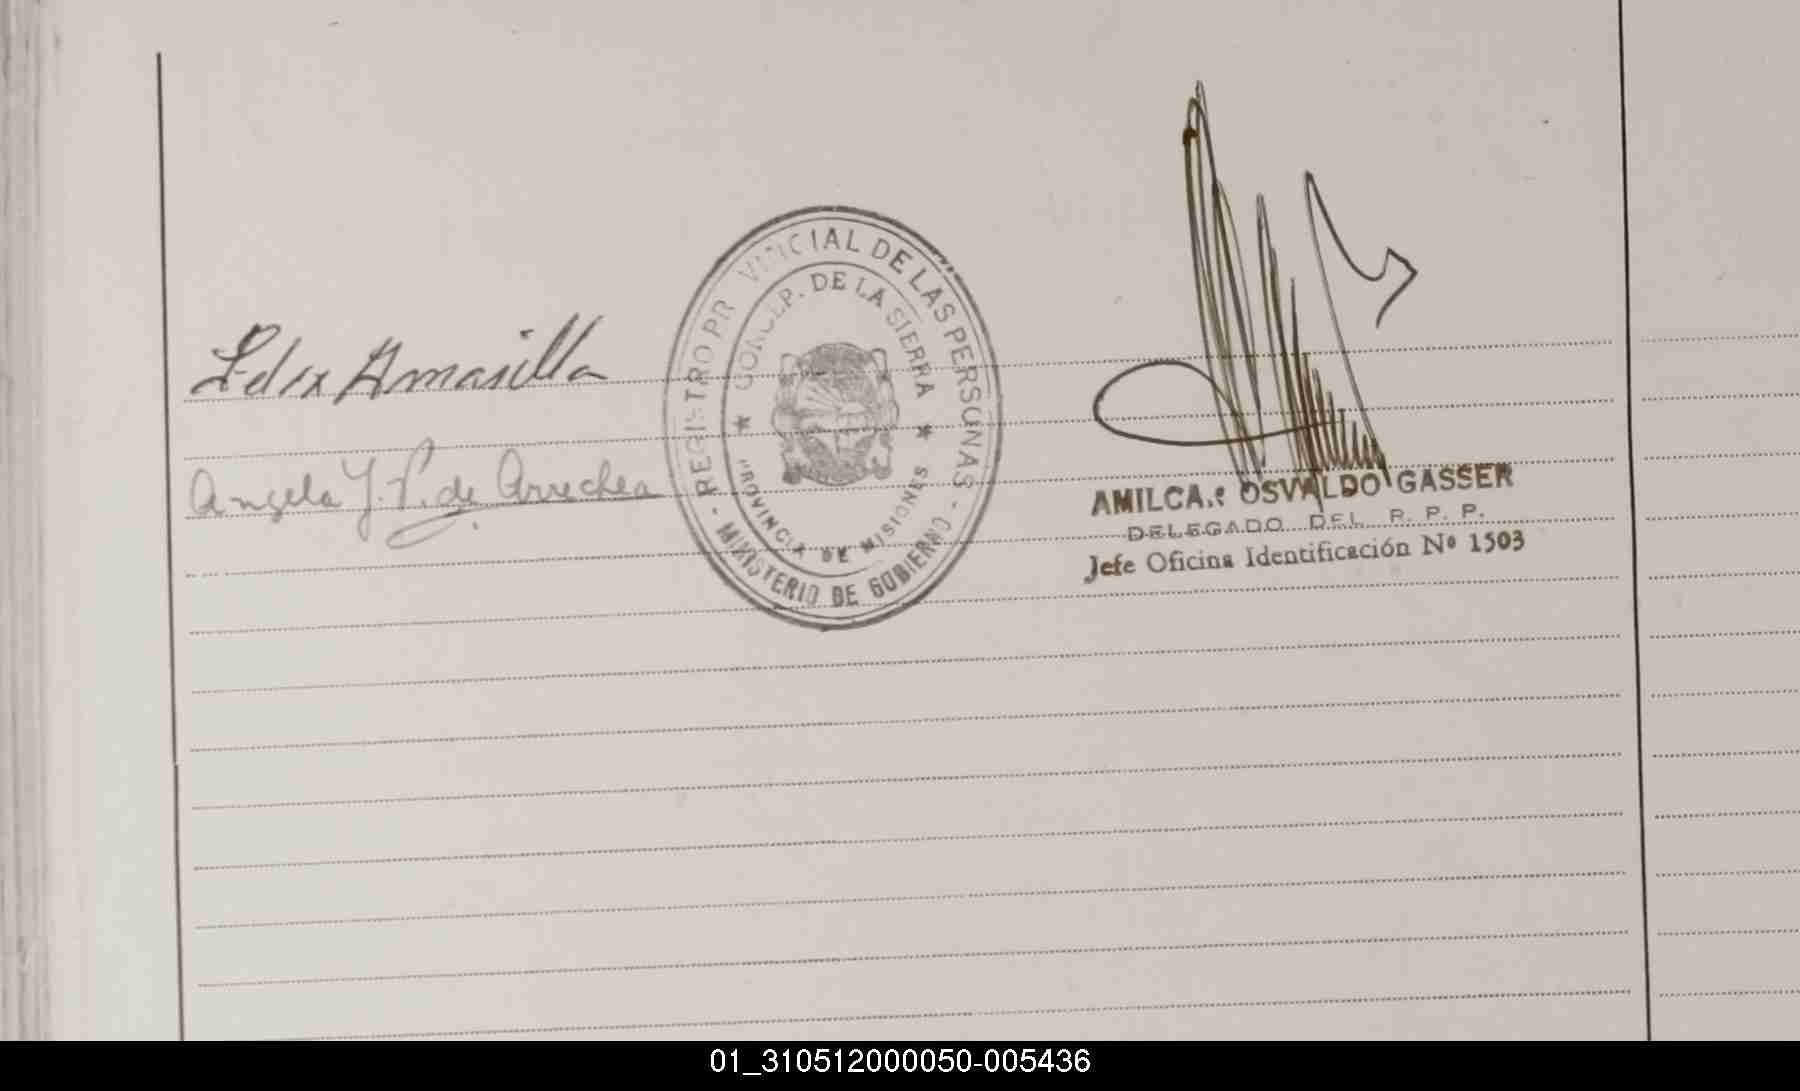 Felix Amarilla
Angela Y. P. de Arrechea
REGISTRO PR VINCIAL DE LAS PERSONAS
- MINISTERIO DE GOBIERNO -
CONCEP. DE LA SIERRA
PROVINCIA DE MISIONES
AMILCAR OSVALDO GASSER
DELEGADO DEL R. P. P.
Jefe Oficina Identificación Nº 1503
01_310512000050-005436